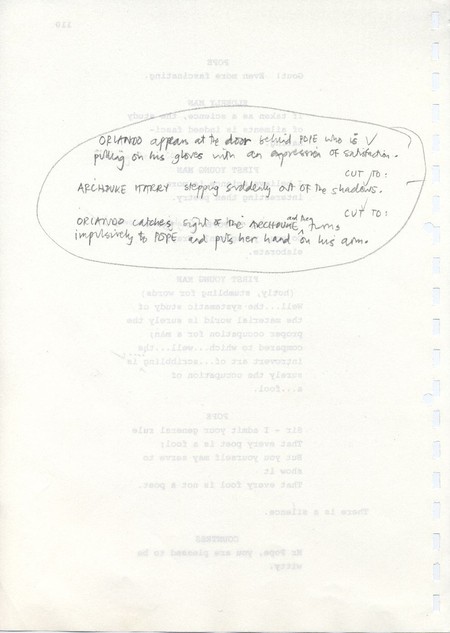 ORLANDO appears at the door behind POPE who is ✓
pulling on his gloves with an expression of satisfaction.
CUT TO:
ARCHDUKE HARRY stepping suddenly out of the shadows.
CUT TO:
ORLANDO catches sight of the ARCHDUKE and then turns
impulsively to POPE and puts her hand on his arm.
110
POPE
Gout! Even more fascinating.
ELDERLY MAN
of taken as a science, the study
of ailments is indeed fasci-
FIRST YOUNG MAN
interesting than poetry.
elaborate.
FIRST YOUNG MAN
(hotly, stumbling for words)
Well...the systematic study of
the material world is surely the
proper occupation for a man;
compared to which...well...the
introvert art of...scribbling is
surely the occupation of
a...fool.
POPE
Sir - I admit your general rule
That every poet is a fool;
But you yourself may serve to
show it
That every fool is not a poet.
There is a silence.
COUNTESS
Mr Pope, you are pleased to be
witty.